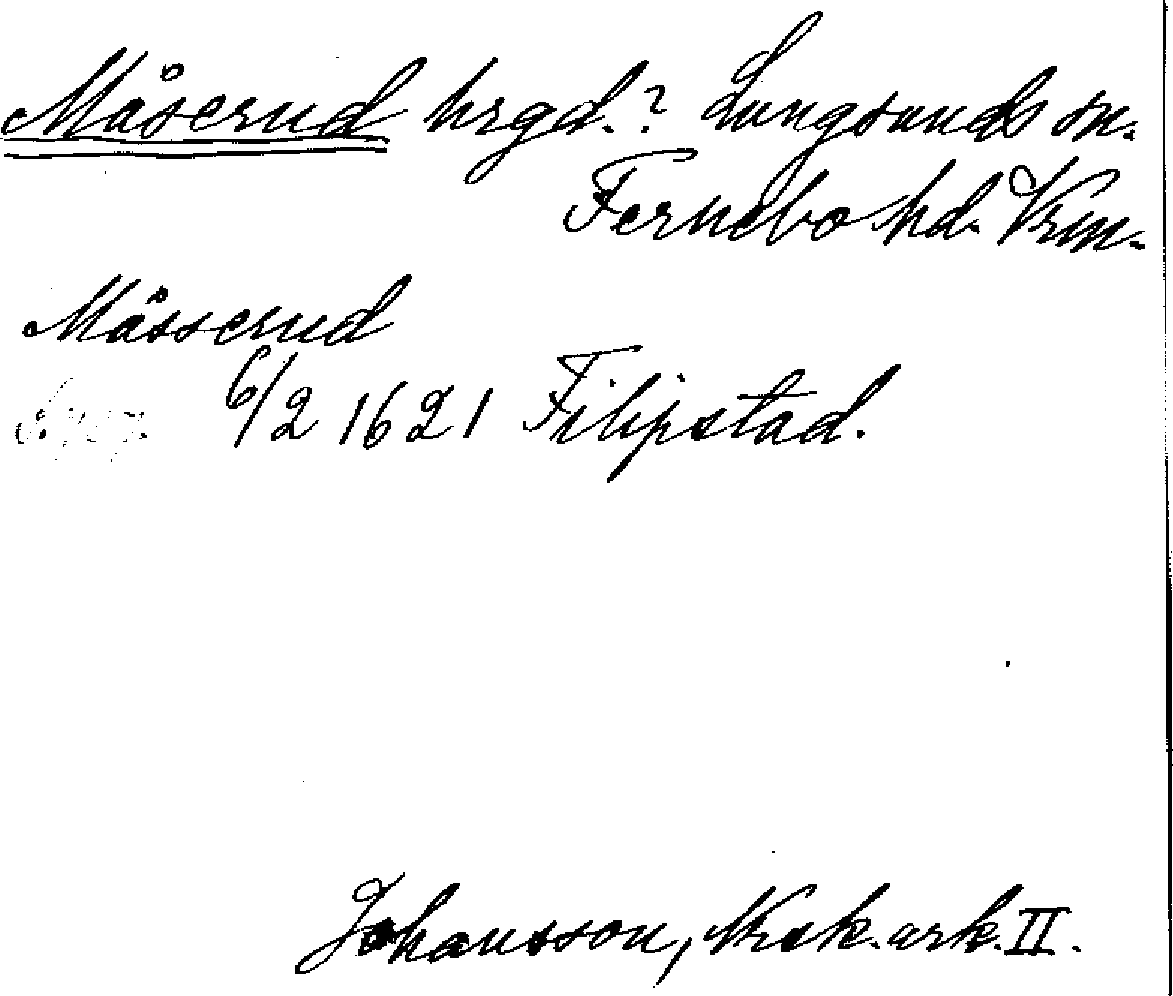 Måserud hrgd.? Lungsunds sn.
Fernebo hd. Vrm.
Måsserud
6/2 1621 Filipstad.
Johansson, Nrsk. ark. II.